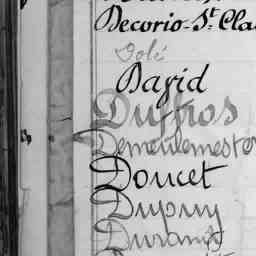 Decorio-St. Cla
Dolé
David
Duffros
Demeulemester
Doucet
Dupuy
Durand